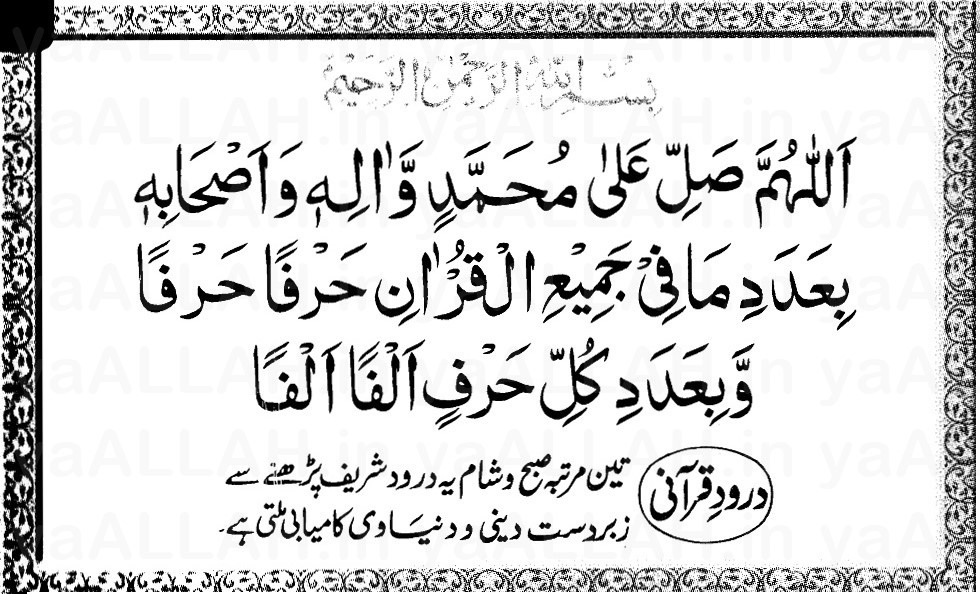 بِسْمِ اللهِ الرَّحْمٰنِ الرَّحِيْمِ
اَللّٰهُمَّ صَلِّ عَلٰى مُحَمَّدٍ وَّاٰلِهٖ وَاَصْحَابِهٖ
بِعَدَدِ مَا فِیْ جَمِیْعِ الْقُرْاٰنِ حَرْفًا حَرْفًا
وَّبِعَدَدِ كُلِّ حَرْفٍ اَلْفًا اَلْفًا
درودِ قرآنی
تین مرتبہ صبح و شام یہ درود شریف پڑھنے سے
زبردست دینی و دنیاوی کامیابی ملتی ہے۔
yaALLAH.in